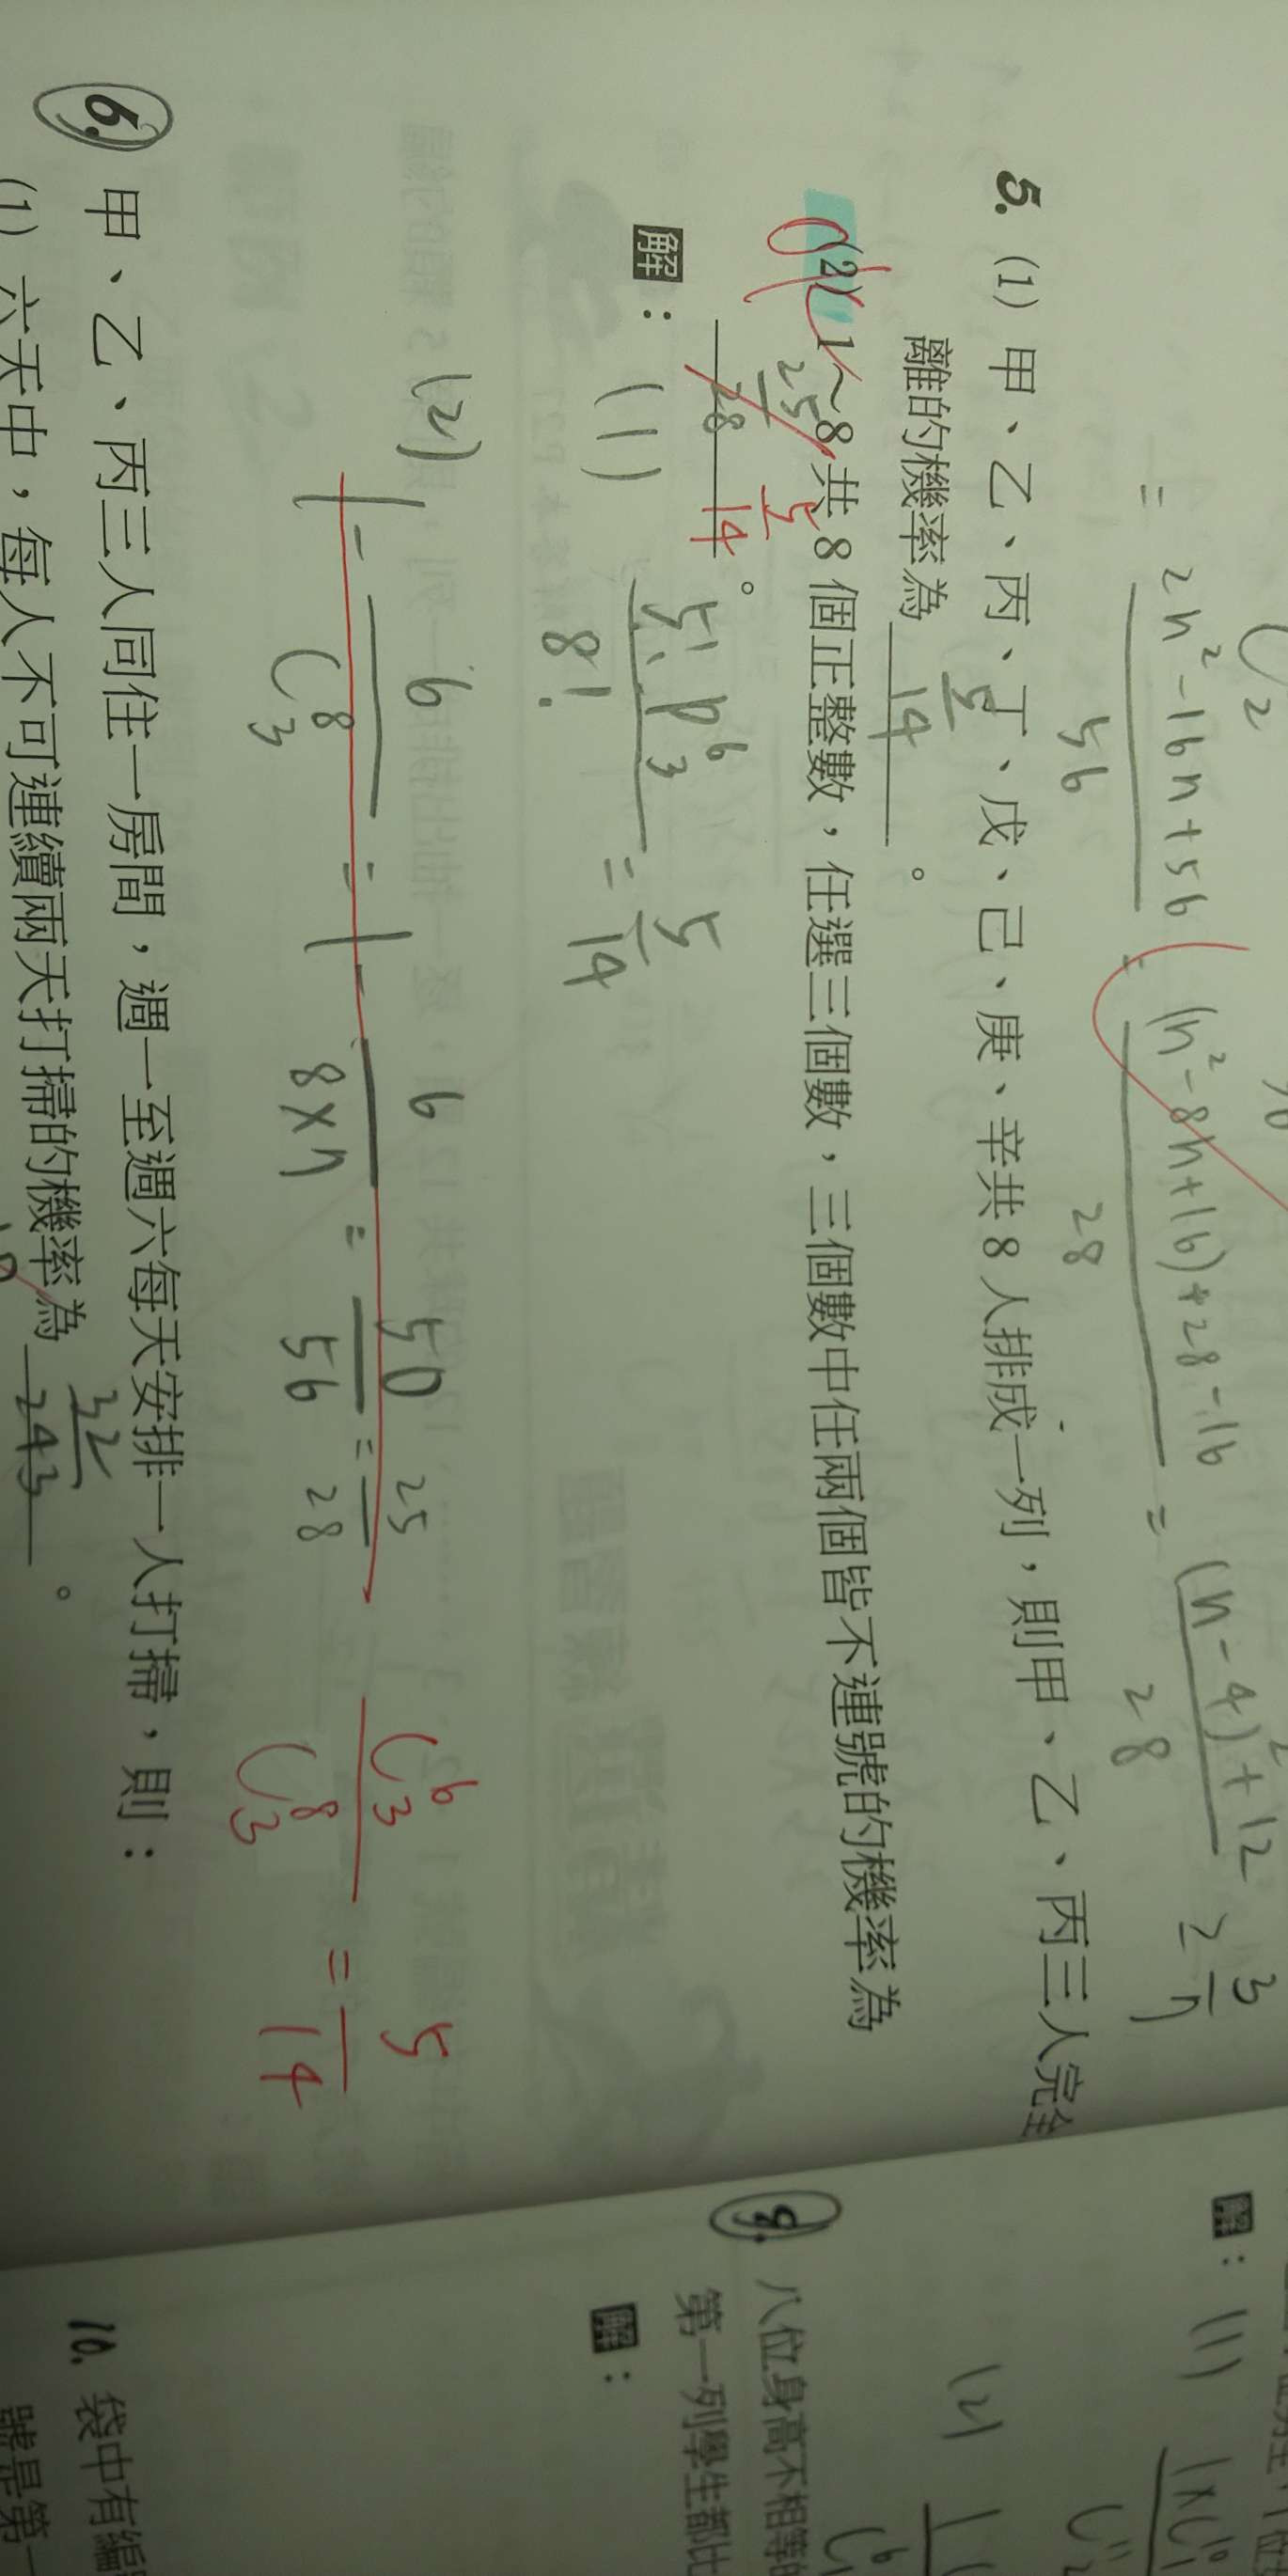 C₂
= (2n² - 16n + 56) / 56 = ((n² - 8n + 16) + 28 - 16) / 28 = ((n - 4)² + 12) / 28 ≥ 3/7
5. (1) 甲、乙、丙、丁、戊、己、庚、辛共 8 人排成一列，則甲、乙、丙三人完全
離的機率為 5/14 。
(2) 1～8 共 8 個正整數，任選三個數，三個數中任兩個皆不連號的機率為
25/28 5/14 。
解：(1) 5!·P⁶₃ / 8! = 5/14
(2) 1 - 6/C⁸₃ = 1 - 6/(8×7) = 50/56 = 25/28 C⁶₃/C⁸₃ = 5/14
6. 甲、乙、丙三人同住一房間，週一至週六每天安排一人打掃，則：
(1) 六天中，每人不可連續兩天打掃的機率為 32/243 。
解：(1) 1×C¹⁰
(2)
9. 八位身高不相等的
第一列學生都比
解：
10. 袋中有編
號是第一